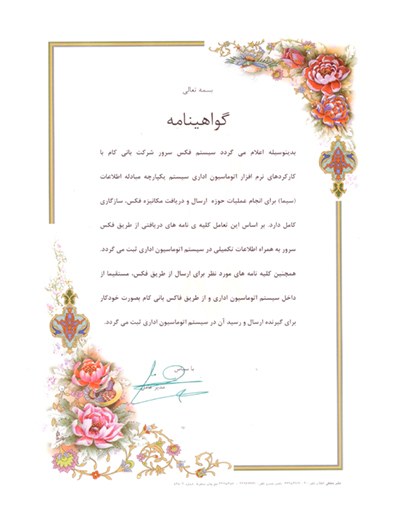 بسمه تعالی
گواهینامه
بدینوسیله اعلام می گردد سیستم فکس سرور شرکت یانی کام با
کارکردهای نرم افزار اتوماسیون اداری سیستم یکپارچه مبادله اطلاعات
(سیما) برای انجام عملیات حوزه ارسال و دریافت مکانیزه فکس، سازگاری
کامل دارد. بر اساس این تعامل کلیه ی نامه های دریافتی از طریق فکس
سرور به همراه اطلاعات تکمیلی در سیستم اتوماسیون اداری ثبت می گردد.
همچنین کلیه نامه های مورد نظر برای ارسال از طریق فکس، مستقیما از
داخل سیستم اتوماسیون اداری و از طریق فاکس یانی کام بصورت خودکار
برای گیرنده ارسال و رسید آن در سیستم اتوماسیون اداری ثبت می گردد.
با سپاس